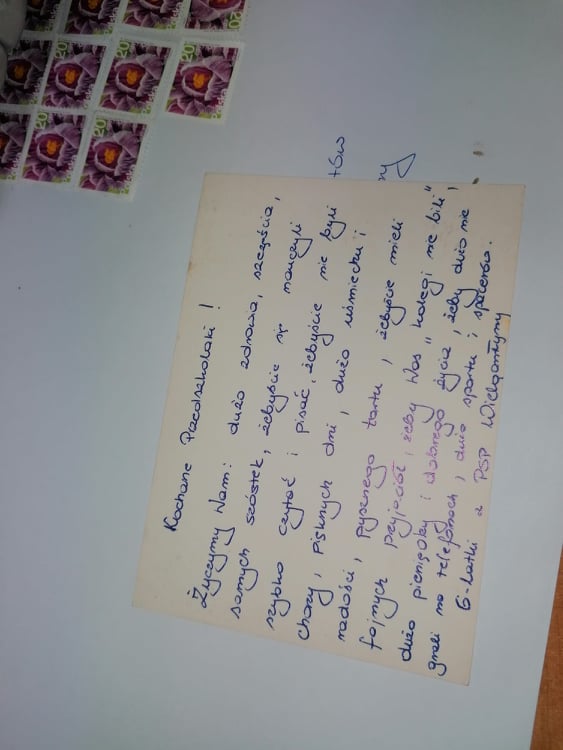 Kochane Przedszkolaki!
Życzymy Wam: dużo zdrowia, szczęścia,
samych szóstek, żebyście się nauczyli
szybko czytać i pisać, żebyście nie byli
chorzy, pięknych dni, dużo uśmiechu i
radości, pysznego tortu, żebyście mieli
fajnych przyjaciół, żeby Was "kolegi nie bili",
dużo pieniędzy i dobrego życia, żeby dużo nie
grali na telefonach, dużo sportu i spacerów.
6-latki z PSP Wielgantyny
tów
ny
20
20
20
20
20
20
20